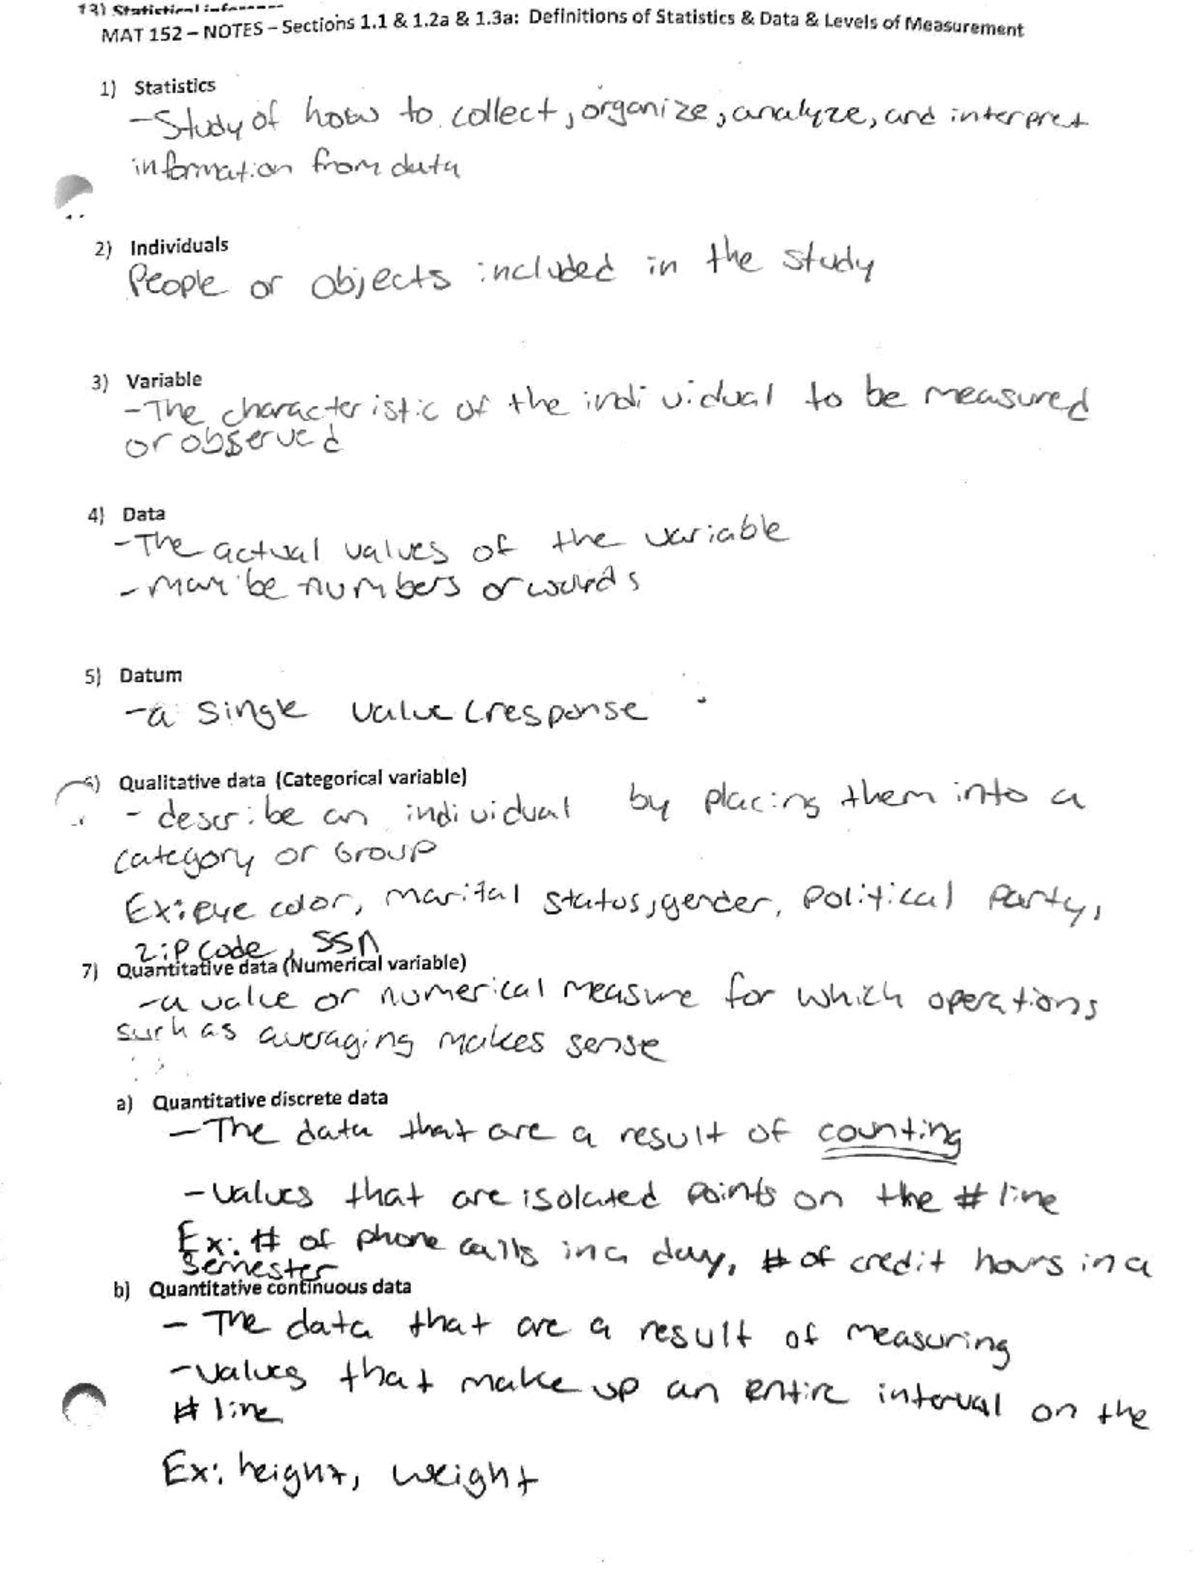 13) Statistical
MAT 152 – NOTES – Sections 1.1 & 1.2a & 1.3a: Definitions of Statistics & Data & Levels of Measurement
1) Statistics
-Study of how to collect, organize, analyze, and interpret
information from data
2) Individuals
People or objects included in the study
3) Variable
-The characteristic of the individual to be measured
or observed
4) Data
-The actual values of the variable
-may be numbers or words
5) Datum
-a single value (response
6) Qualitative data (Categorical variable)
- describe an individual by placing them into a
category or Group
Ex: eye color, marital status, gender, Political Party,
zip code, SSN
7) Quantitative data (Numerical variable)
-a value or numerical measure for which operations
such as averaging makes sense
a) Quantitative discrete data
-The data that are a result of counting
-values that are isolated points on the # line
Ex: # of phone calls in a day, # of credit hours in a
semester
b) Quantitative continuous data
- The data that are a result of measuring
-values that make up an entire interval on the
# line
Ex: height, weight